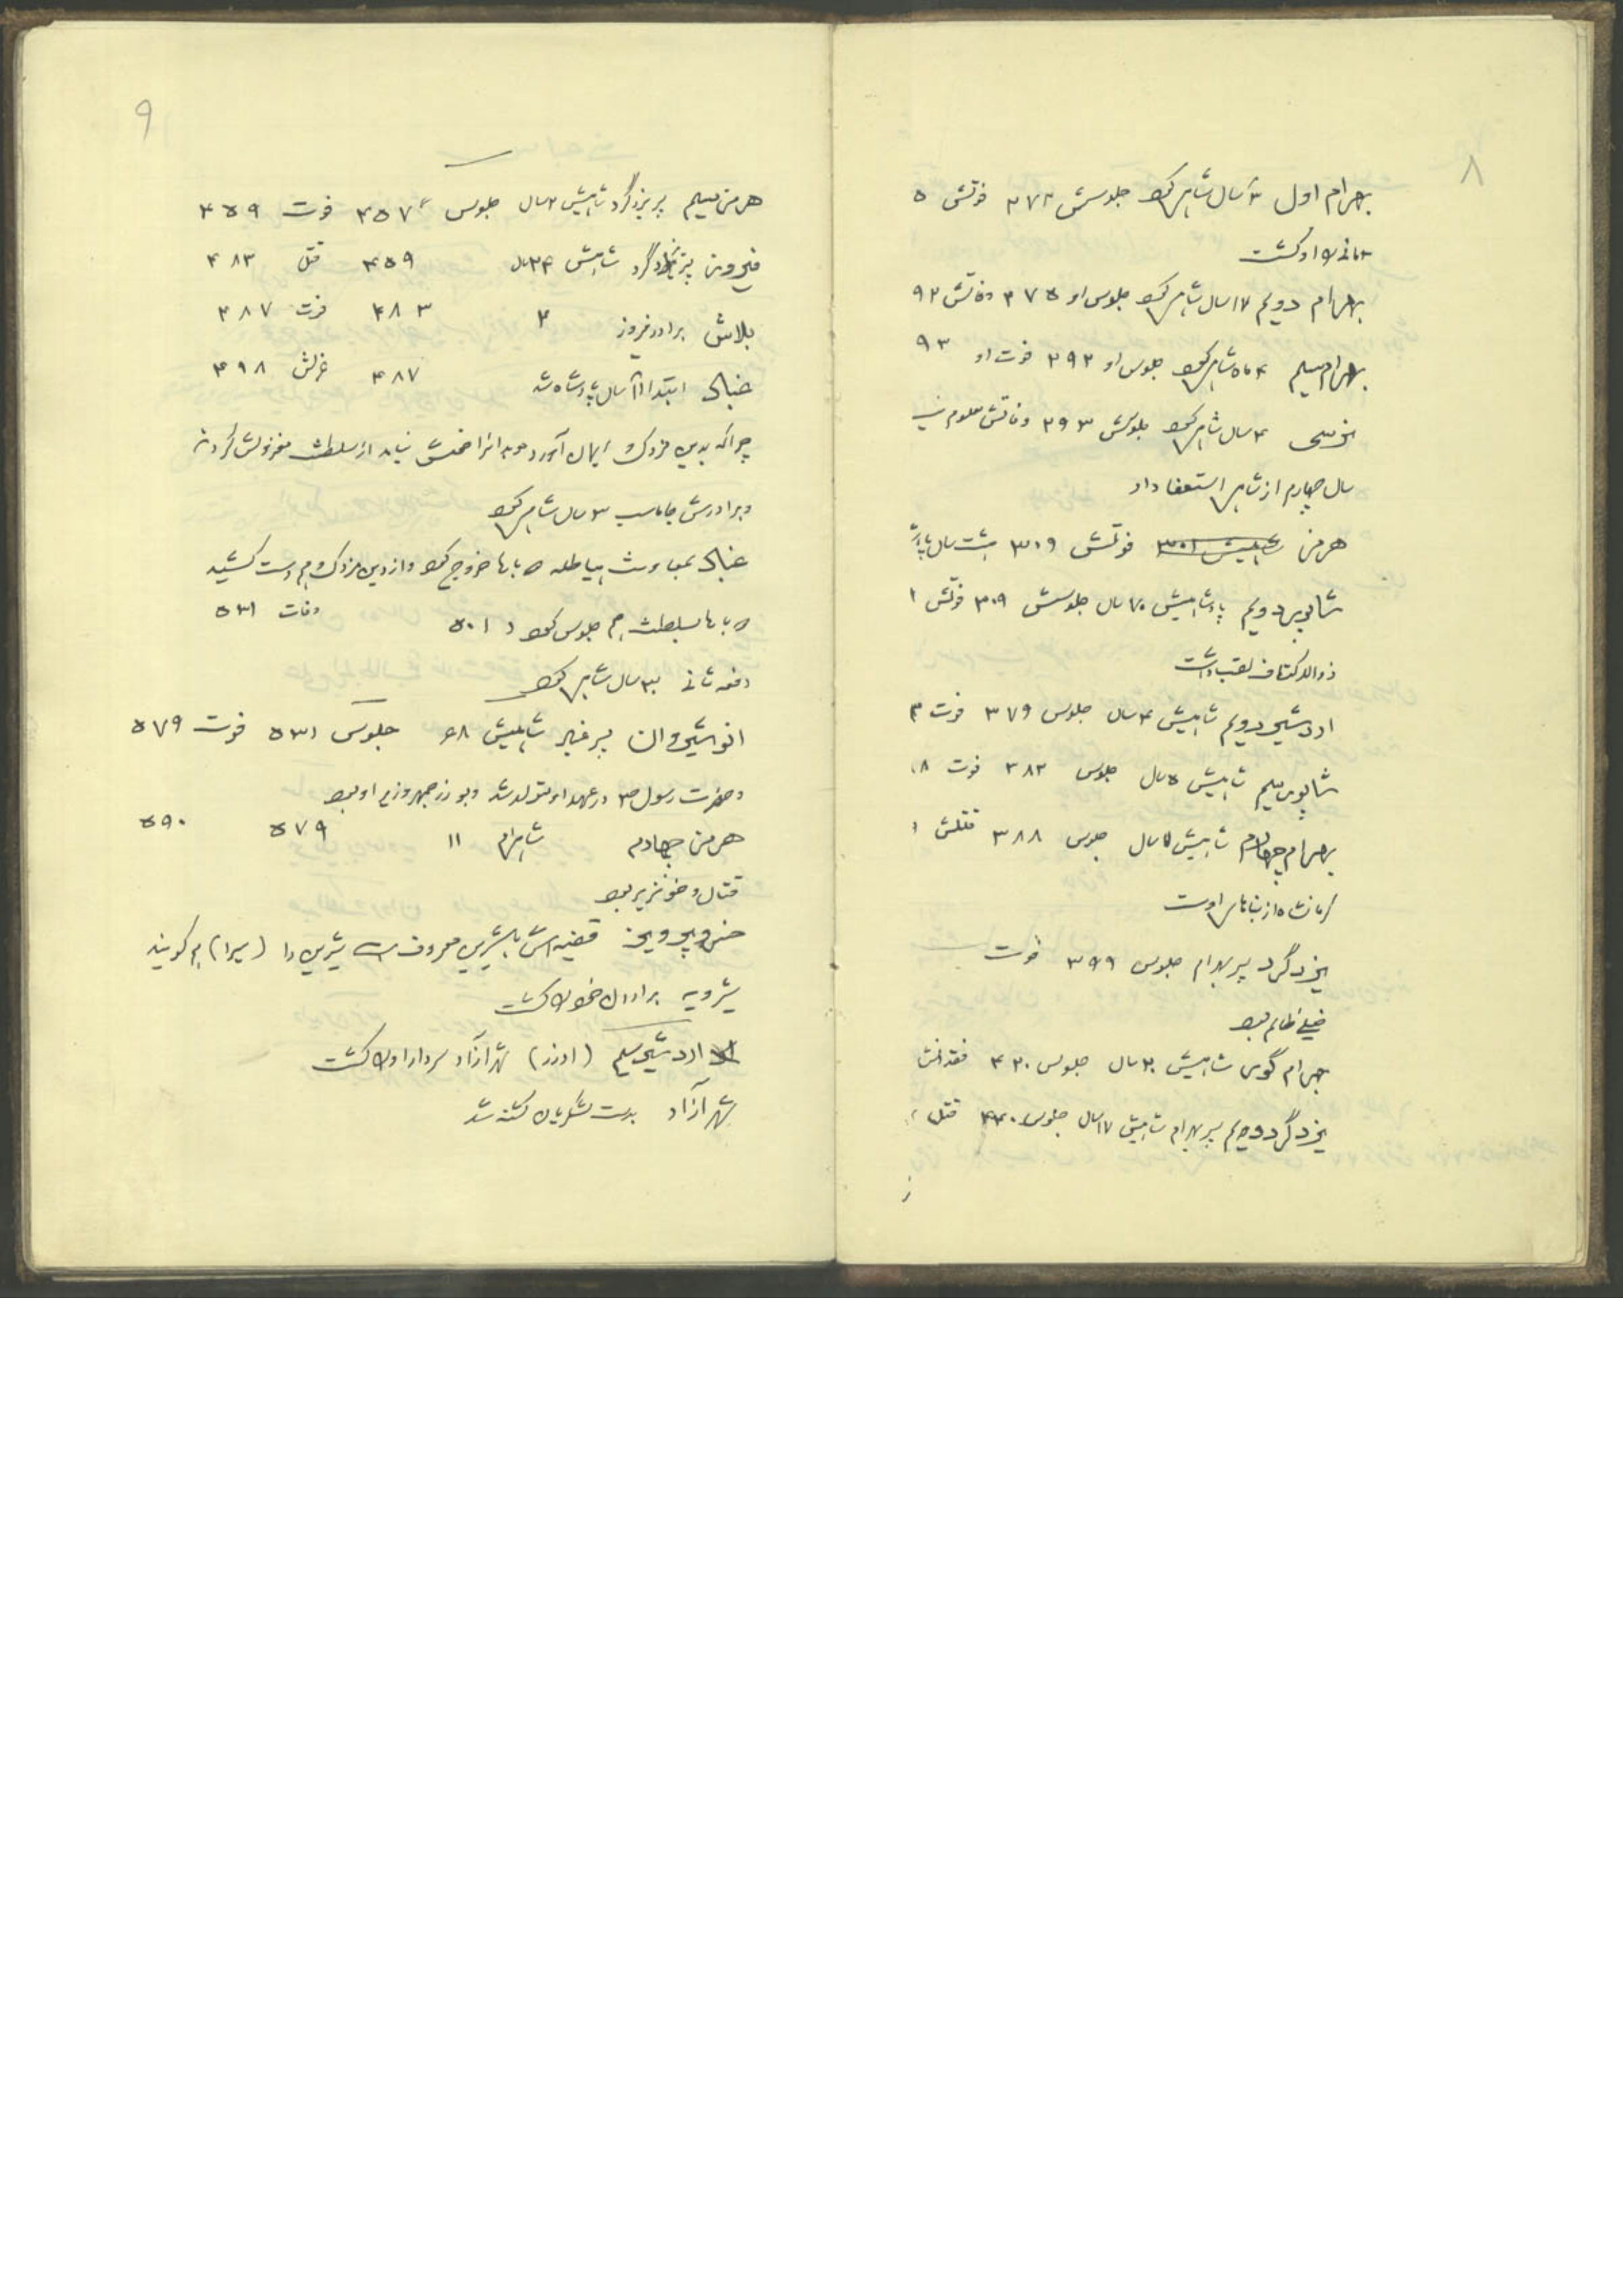 ۸
بهرام اول ۳ سال شاهی کرد جلوسش ۲۷۲ فوتش ۵
مانی را او کشت
بهرام دویم ۱۷ سال شاهی کرد جلوس او ۲۷۵ وفاتش ۹۲
بهرام سیم ۴ ماه شاهی کرد جلوس او ۲۹۲ فوت او ۹۳
نرسی ۴ سال شاهی کرد جلوسش ۲۹۳ وفاتش معلوم
سال چهارم از شاهی استعفا داد
هرمز فوتش ۳۰۹ هشت سال
شاپور دویم پادشاهیش ۷۰ سال جلوسش ۳۰۹ فوتش
ذوالاکتاف لقب داشت
اردشیر دویم شاهیش ۴ سال جلوس ۳۷۹ فوت ۳
شاپور سیم شاهیش ۵ سال جلوس ۳۸۳ فوت ۸
بهرام چهارم شاهیش سال جلوس ۳۸۸ قتلش
کرمانشاه از بناهای اوست
یزدگرد پسر بهرام جلوس ۳۹۹ فوت
خیلی ظالم بود
بهرام گور شاهیش ۲۰ سال جلوس ۴۲۰ فقدانش
یزدگرد دویم پسر بهرام شاهیش ۱۷ سال جلوس ۴۴۰ قتل
۹
هرمز سیم پسر یزدگرد شاهیش ۲ سال جلوس ۴۵۷ فوت ۴۵۹
فیروز پسر یزدگرد شاهیش ۲۴ سال ۴۵۹ قتل ۴۸۳
بلاش برادر فیروز ۴ ۴۸۳ فوت ۴۸۷
غباد ابتدا ۱۱ سال پادشاه شد ۴۸۷ عزلش ۴۹۸
چرا که بدین مزدک ایمان آورد مردم را خوش نیامد از سلطنت معزولش کردند
و برادرش جاماسب ۳ سال شاهی کرد
غباد بمعاونت هیاطله دوبارها خروج کرد و از دین مزدک هم دست کشید
دوبارها بسلطنت هم جلوس کرد در ۵۰۱ وفات ۵۳۱
دفعه ثانی ۳۰ سال شاهی کرد
انوشیروان پسر غباد شاهیش ۴۸ جلوس ۵۳۱ فوت ۵۷۹
و حضرت رسول ص در عهد او متولد شد و بوزرجمهر وزیر او بود
هرمز چهارم شاهی ۱۱ ۵۷۹ ۵۹۰
قتال و خونریز بود
خسرو پرویز قضیه اش با شیرین معروف است شیرین را (سیرا) هم گویند
شیرویه برادران خود را کشت
اردشیر سیم (اورزد) شهرآزاد سردار او را کشت
شهرآزاد بدست لشگریان کشته شد